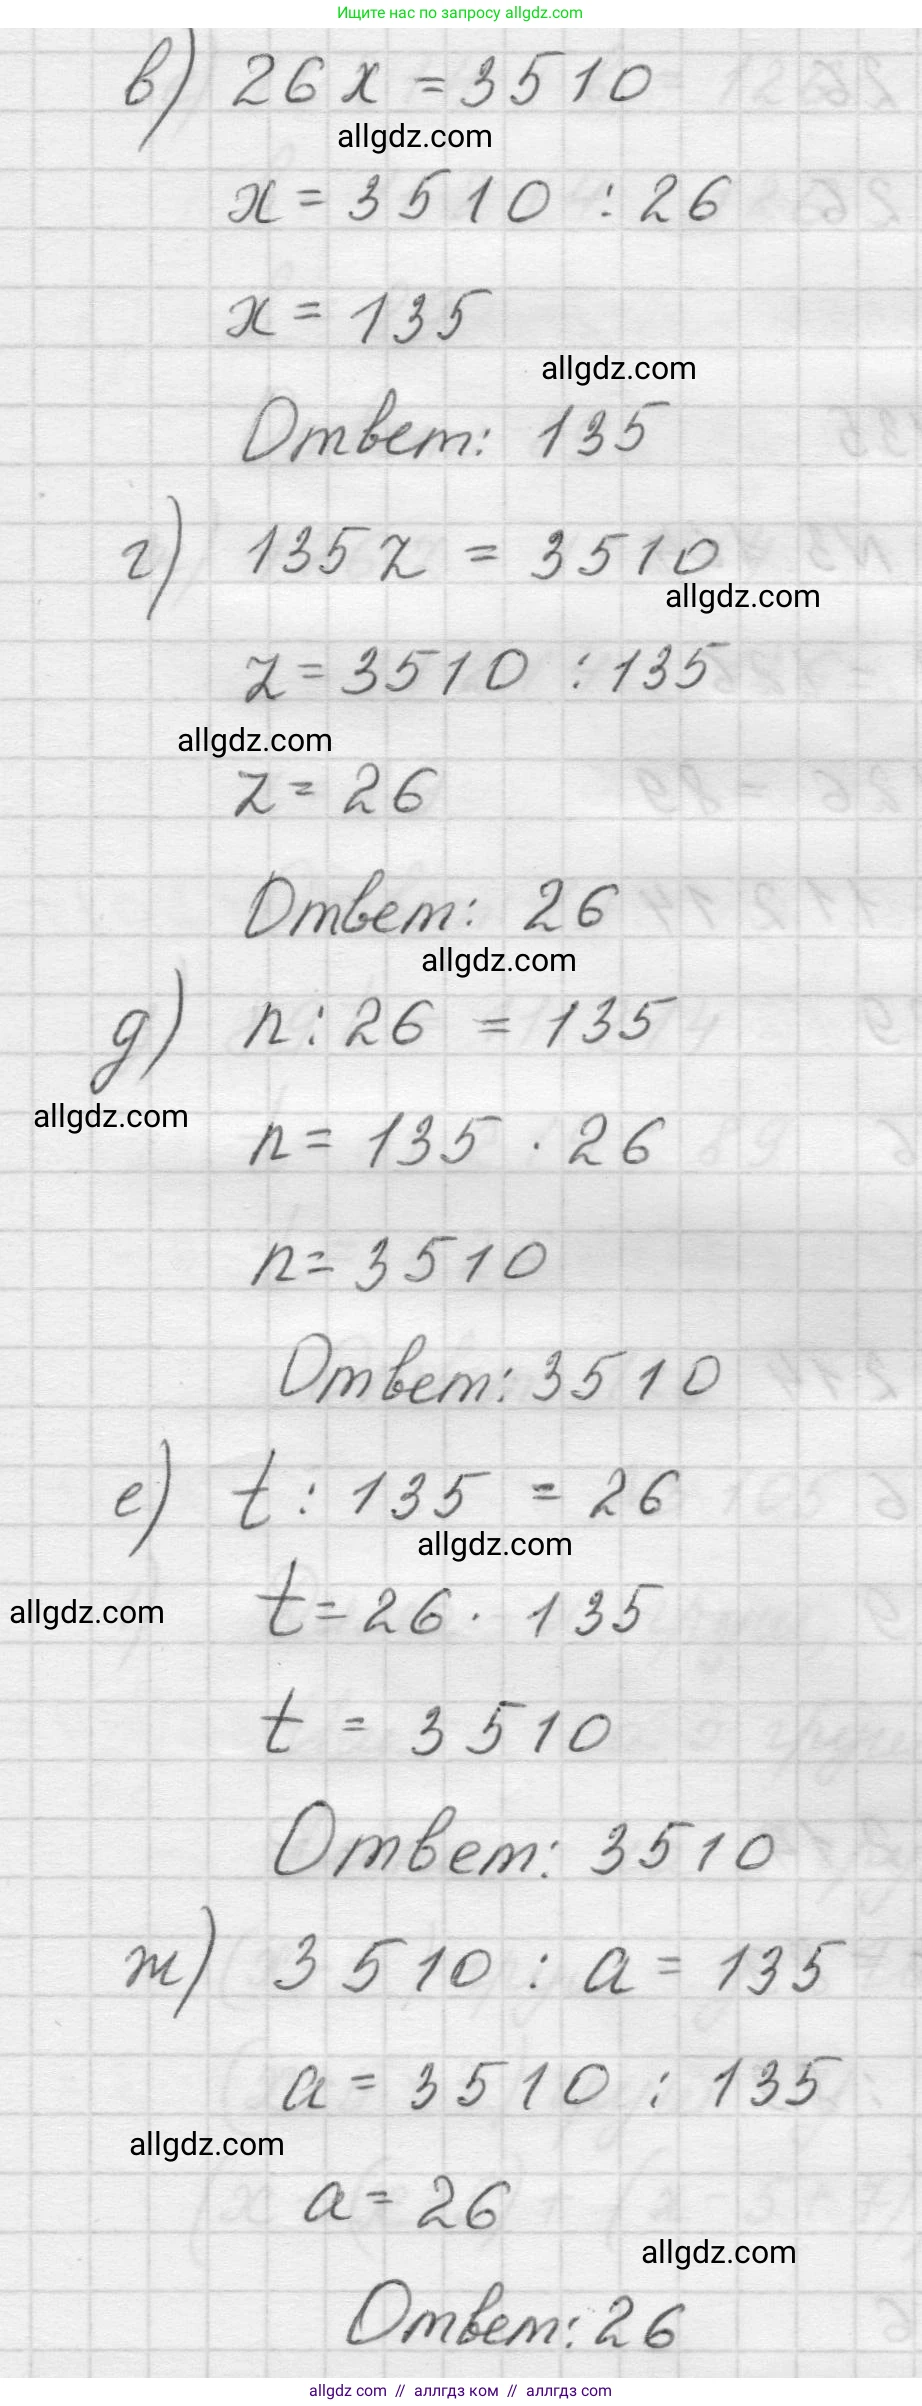 Ищите нас по запросу allgdz.com
в) 26x = 3510
allgdz.com
x = 3510 : 26
x = 135
allgdz.com
Ответ: 135
г) 135z = 3510
allgdz.com
z = 3510 : 135
allgdz.com
z = 26
Ответ: 26
allgdz.com
д) n : 26 = 135
allgdz.com
n = 135 · 26
n = 3510
Ответ: 3510
е) t : 135 = 26
allgdz.com
allgdz.com
t = 26 · 135
t = 3510
Ответ: 3510
ж) 3510 : a = 135
a = 3510 : 135
allgdz.com
a = 26
allgdz.com
Ответ: 26
allgdz.com // аллгдз ком // аллгдз.com